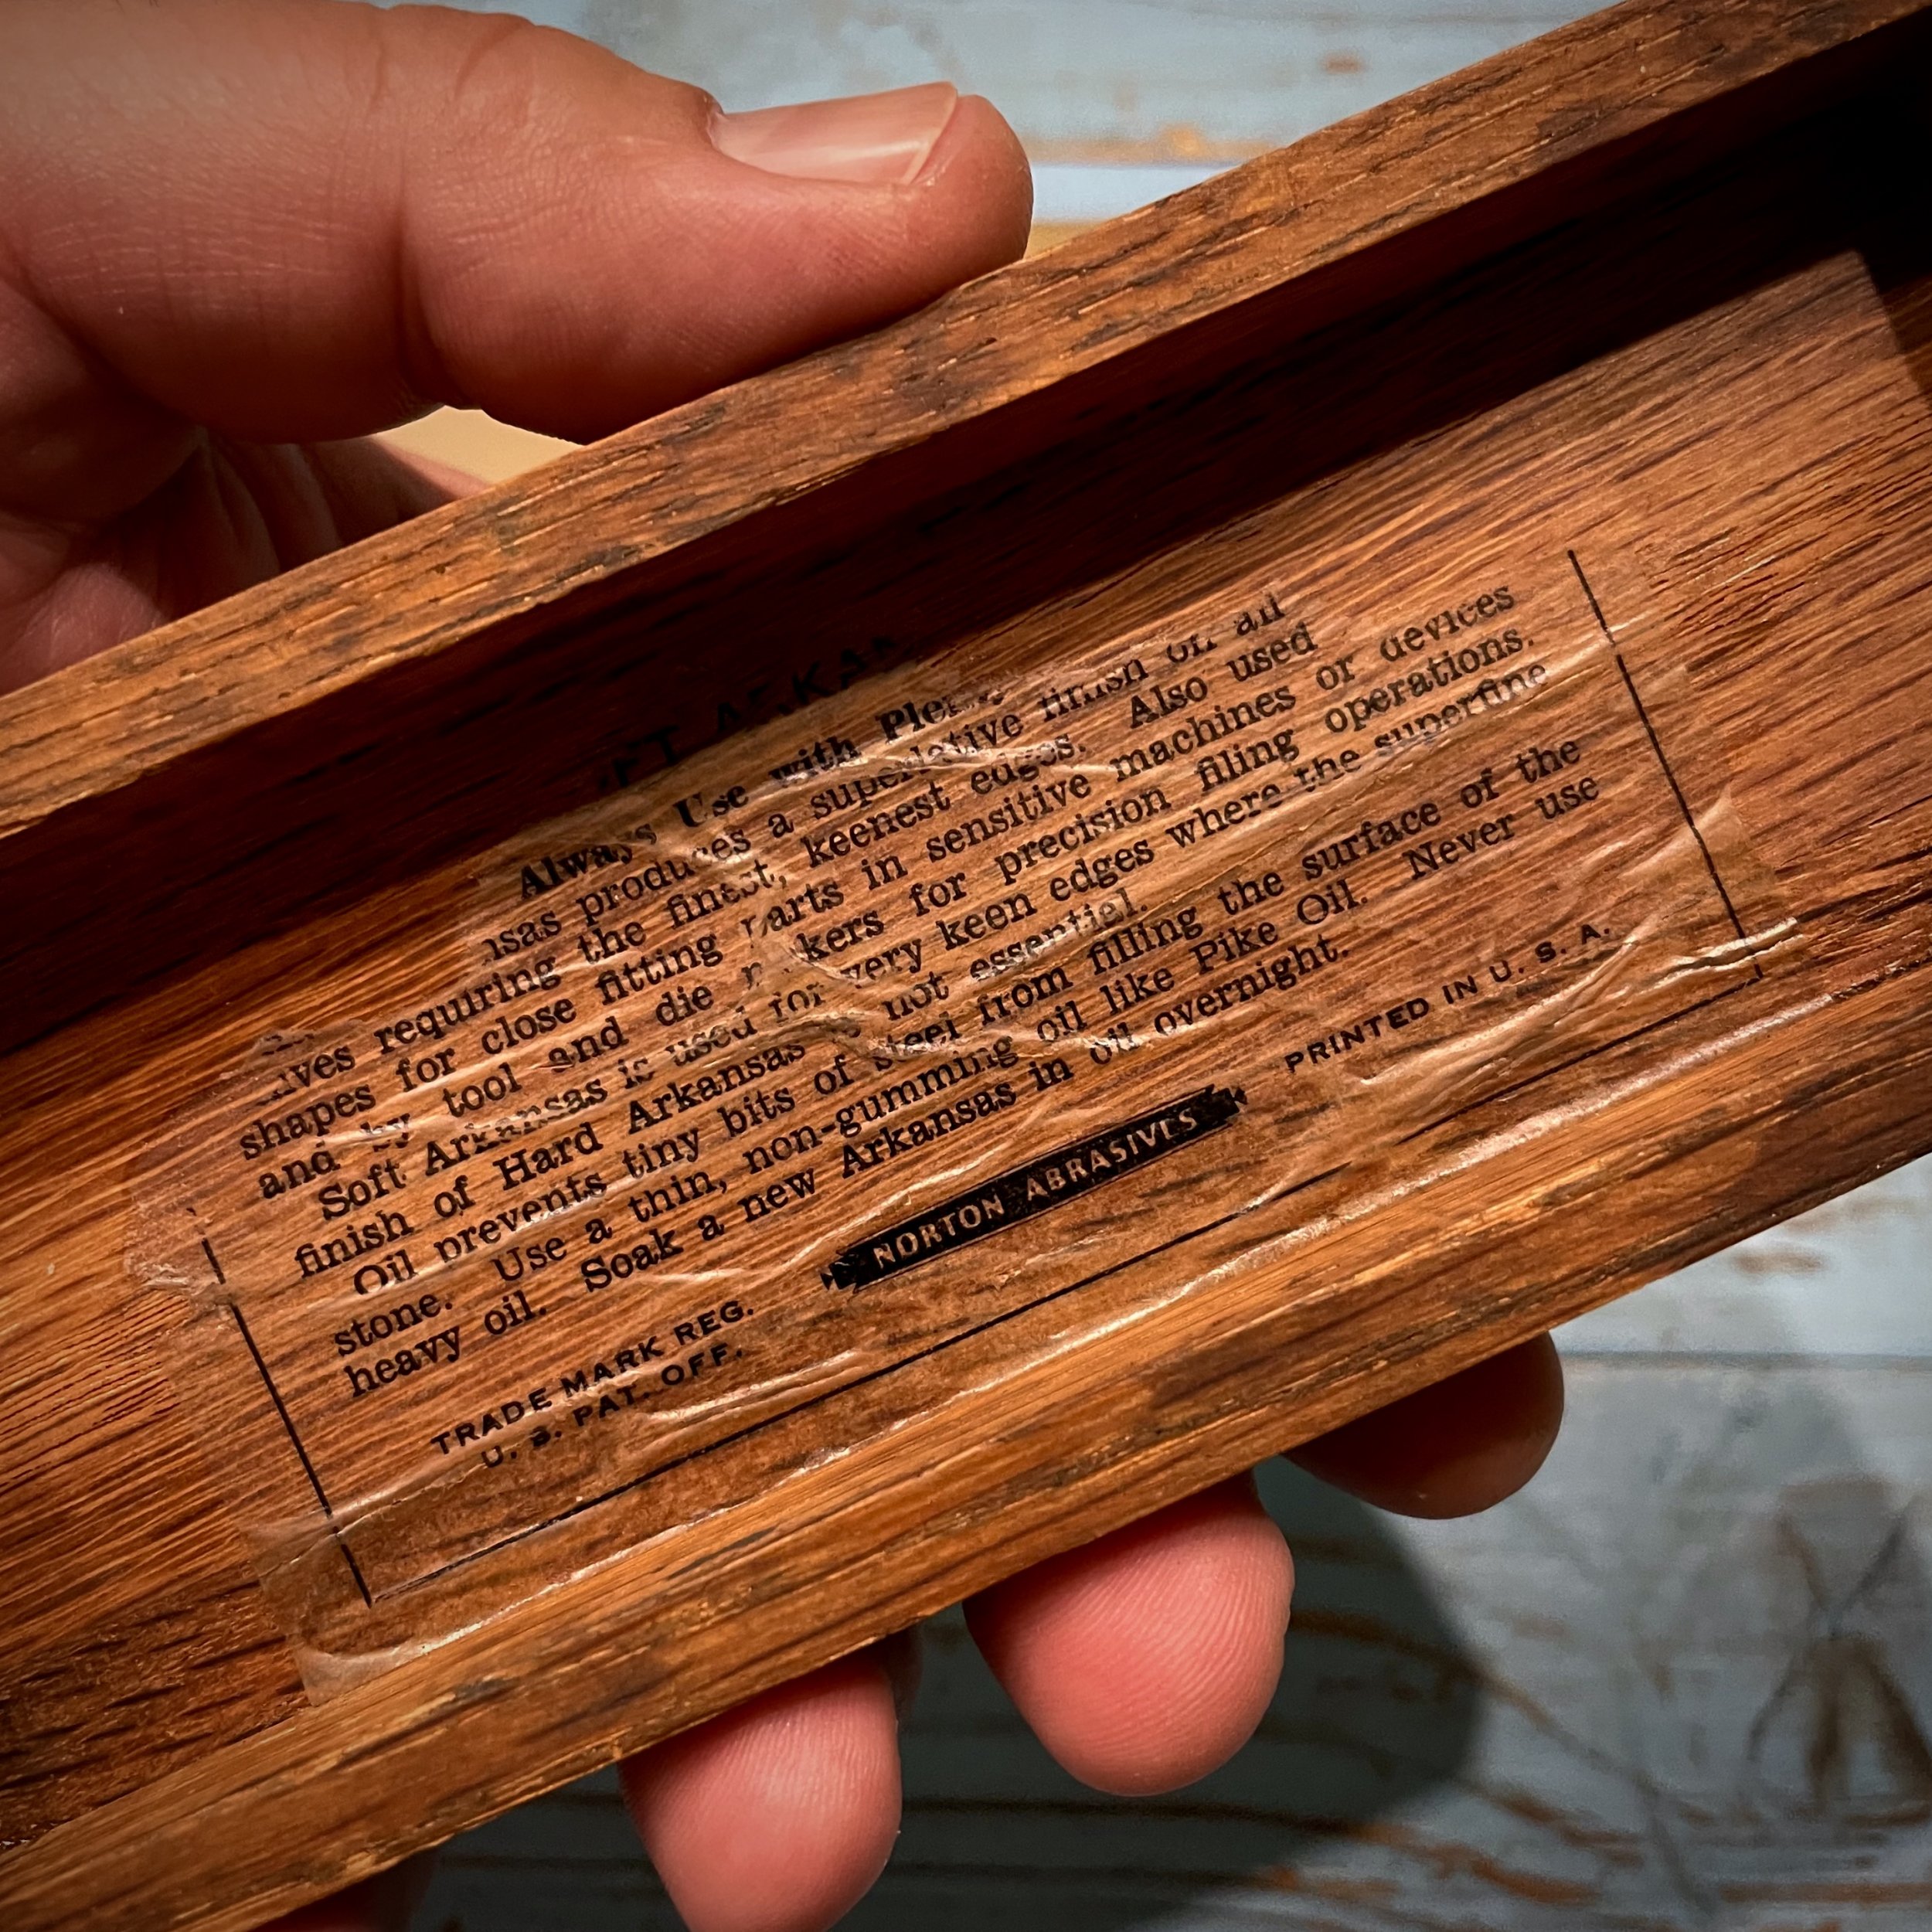 Always Use with
produces a superlative finish on all
requiring the finest, keenest edges. Also used
shapes for close fitting parts in sensitive machines or devices
and by tool and die makers for precision filing operations.
Soft Arkansas is used for very keen edges where the superfine
finish of Hard Arkansas not essential.
Oil prevents tiny bits of steel from filling the surface of the
stone. Use a thin, non-gumming oil like Pike Oil. Never use
heavy oil. Soak a new Arkansas in oil overnight.
TRADE MARK REG.
U. S. PAT. OFF.
NORTON ABRASIVES
PRINTED IN U. S. A.